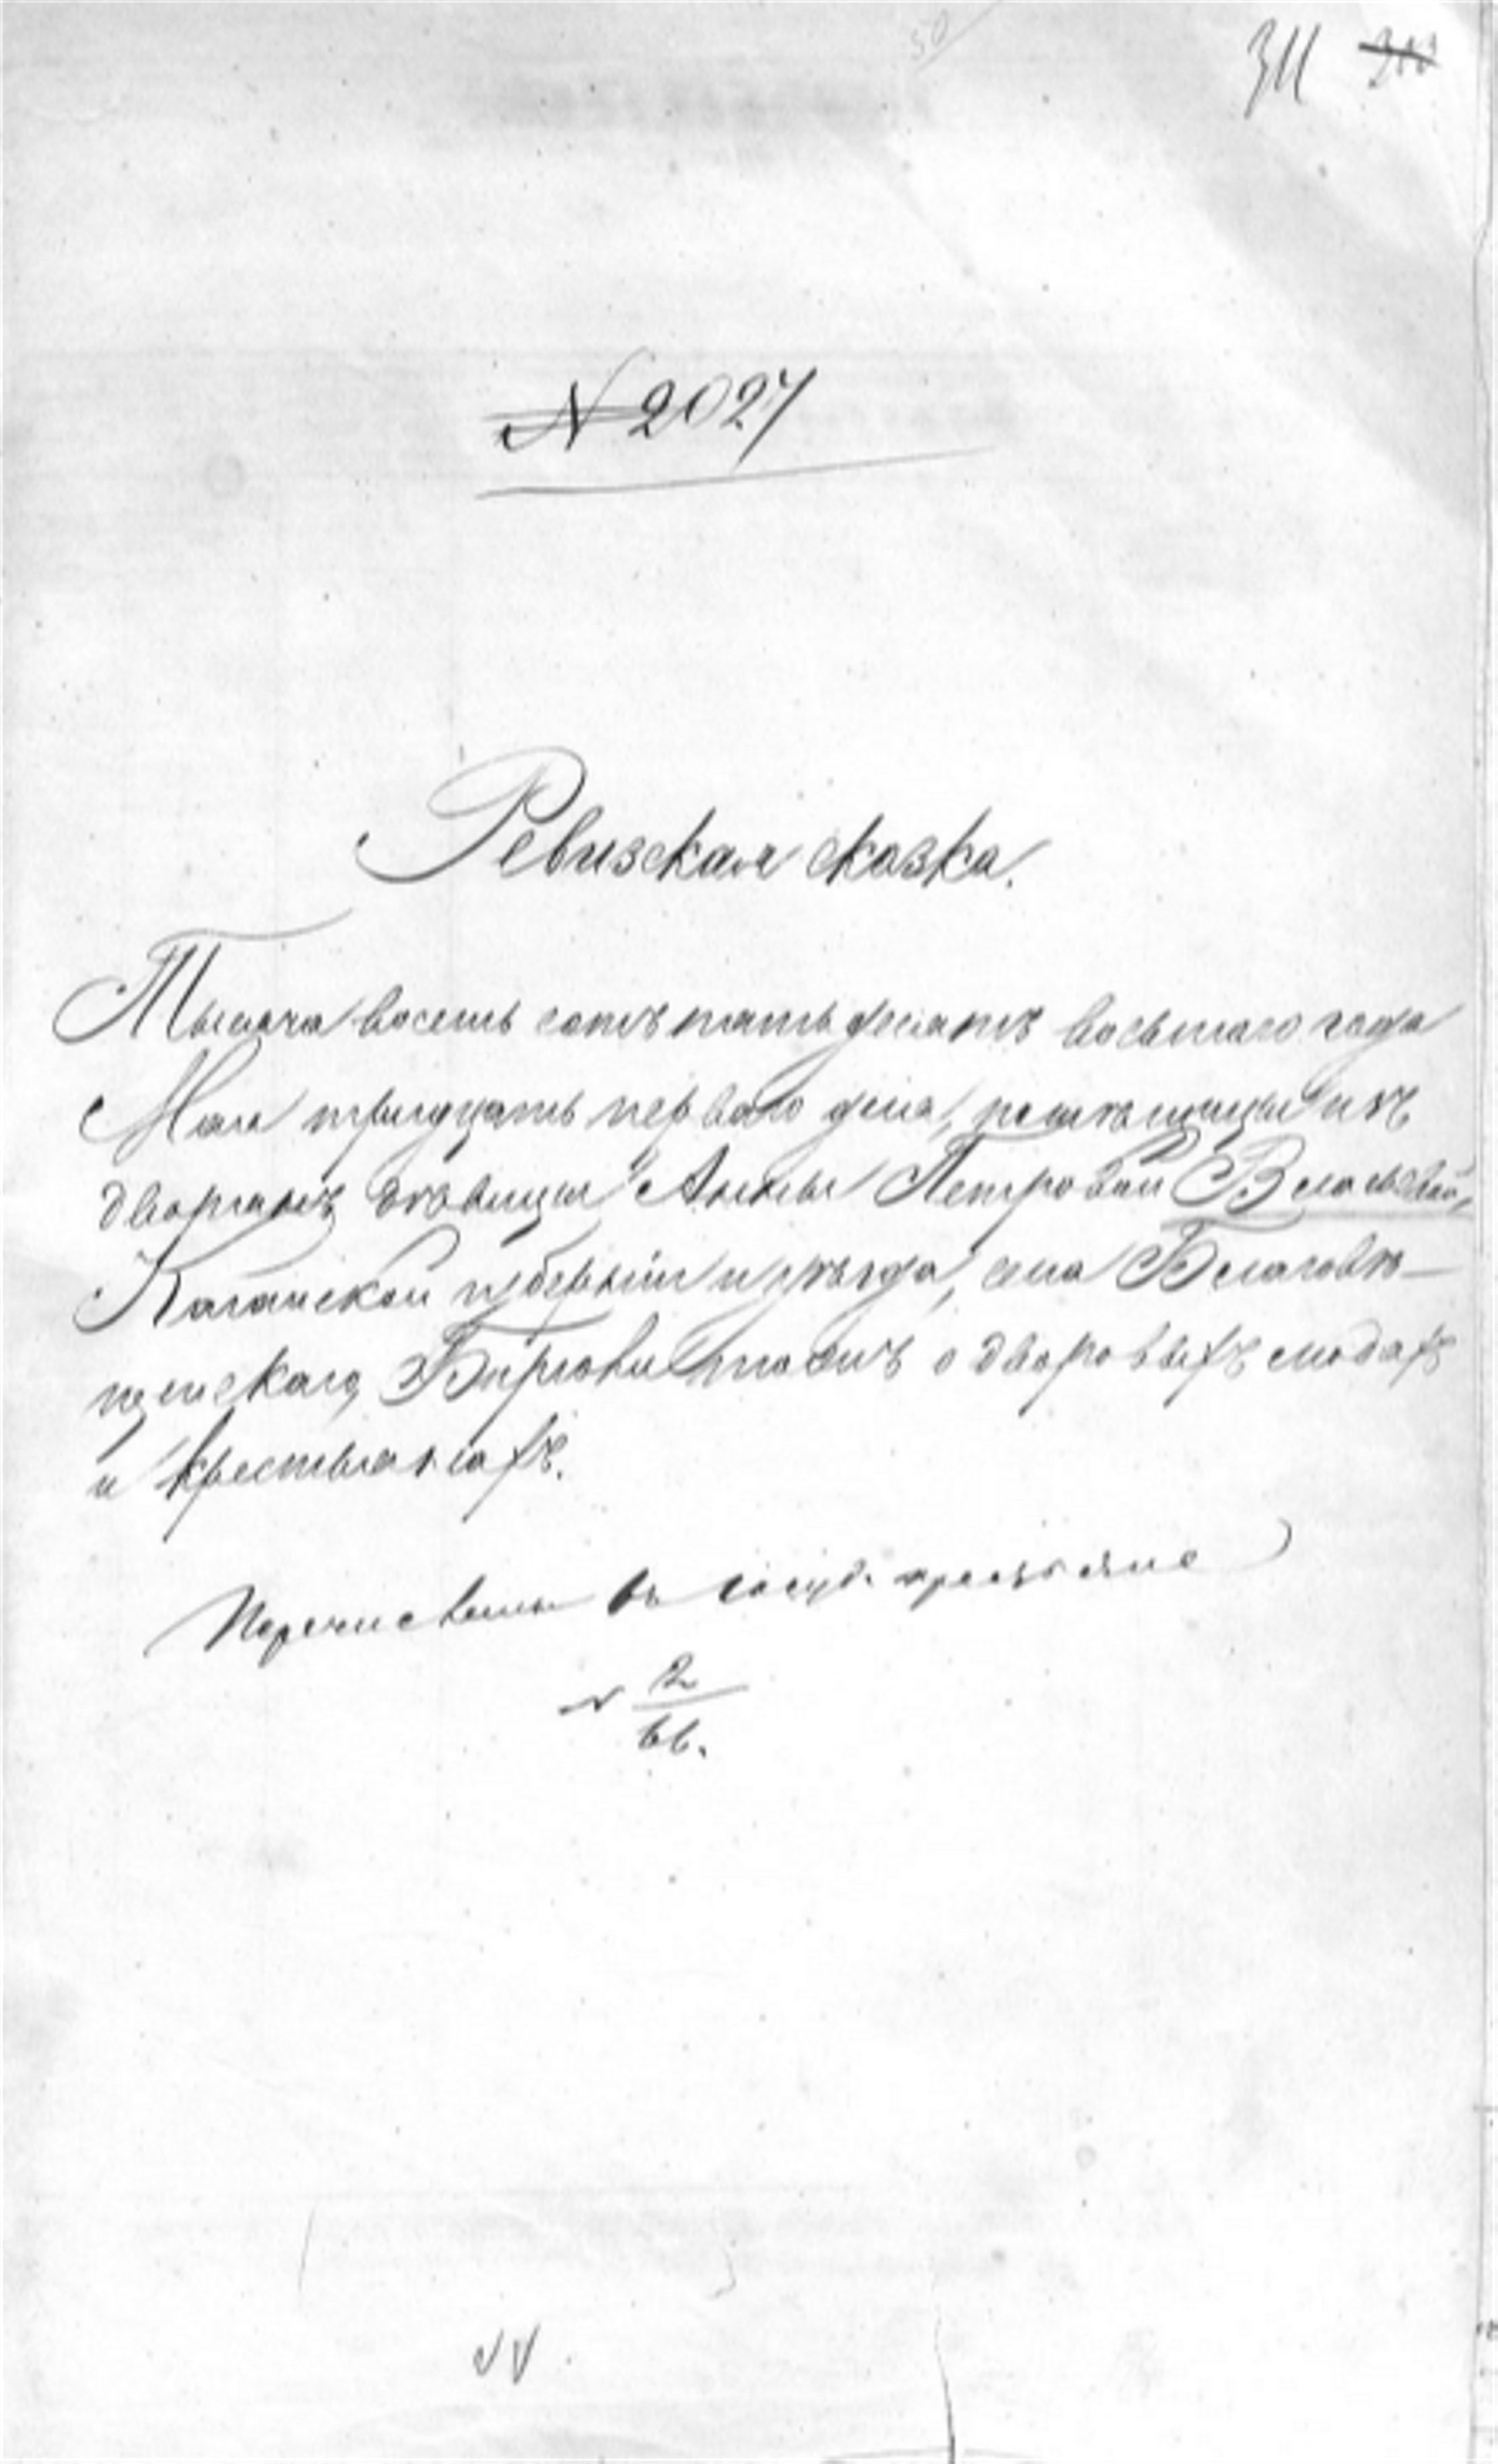 50
311 
№ 2027
Ревизская сказка.
Тысяча восемь сотъ пятьдесятъ восьмаго года
Мая тридцать перваго дня, помѣщицы изъ
дворянъ дѣвицы Анны Петровой
Казанской губерніи и уѣзда, села Благовѣ-
щенскаго, тожъ о дворовыхъ людяхъ
и крестьянахъ.
Перечислены въ госуд. крестьяне
№ 2
66.